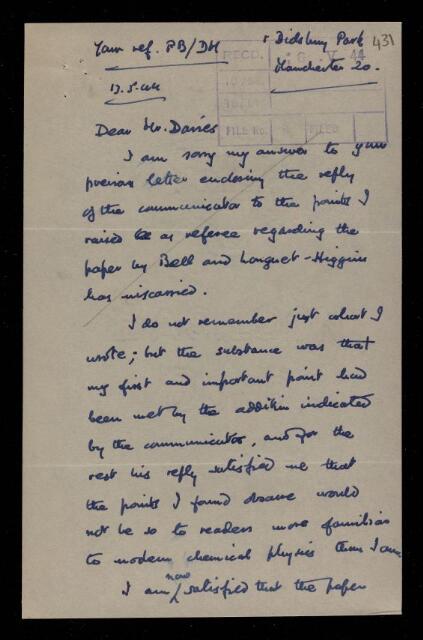 Your ref. PB/DH
5 Didsbury Park
431
Manchester 20.
RECD. 16 V 44
17.5.44
FILE No. FILED
Dear Mr. Davies
I am sorry my answer to your
previous letter enclosing the reply
of the communicator to the points I
raised as referee regarding the
paper by Bell and Longuet-Higgins
has miscarried.
I do not remember just what I
wrote; but the substance was that
my first and important point had
been met by the addition indicated
by the communicator, and for the
rest his reply satisfied me that
the points I found obscure would
not be so to readers more familiar
to modern chemical physics than I am.
I am now satisfied that the paper